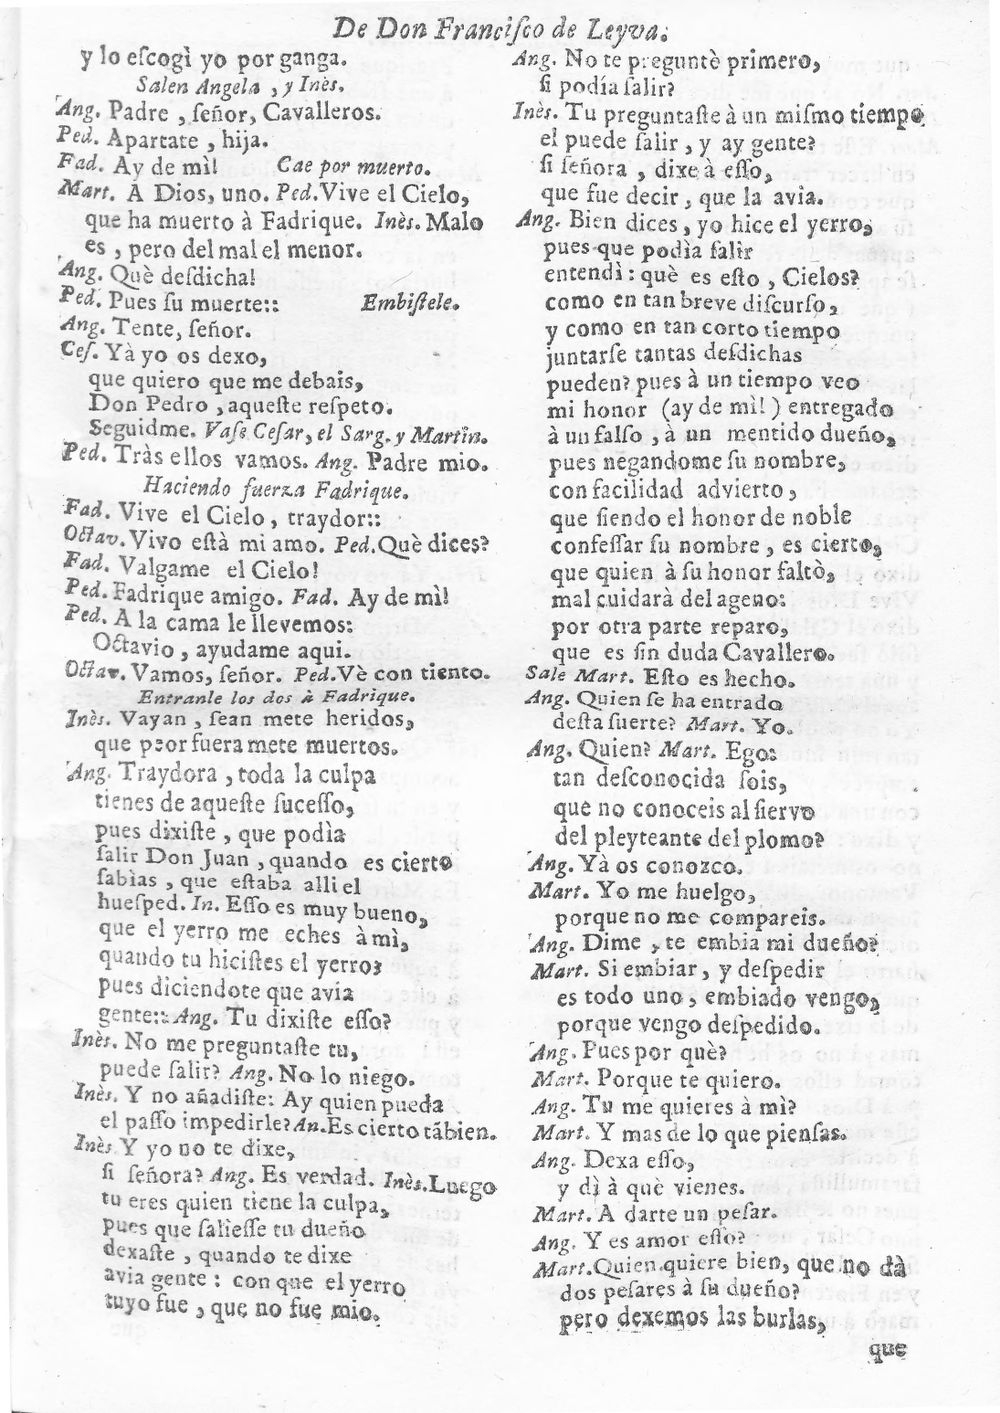 De Don Franciſco de Leyva.
y lo eſcogì yo por ganga.
Salen Angela, y Inès.
Ang. Padre, ſeñor, Cavalleros.
Ped. Apartate, hija.
Fad. Ay de mì! Cae por muerto.
Mart. A Dios, uno. Ped. Vive el Cielo,
que ha muerto à Fadrique. Inès. Malo
es, pero del mal el menor.
Ang. Què deſdicha!
Ped. Pues ſu muerte:: Embiſtele.
Ang. Tente, ſeñor.
Ceſ. Yà yo os dexo,
que quiero que me debais,
Don Pedro, aqueſte reſpeto.
Seguidme. Vaſe Ceſar, el Sarg. y Martin.
Ped. Tràs ellos vamos. Ang. Padre mio.
Haciendo fuerza Fadrique.
Fad. Vive el Cielo, traydor::
Octav. Vivo eſtà mi amo. Ped. Què dices?
Fad. Valgame el Cielo!
Ped. Fadrique amigo. Fad. Ay de mì!
Ped. A la cama le llevemos:
Octavio, ayudame aqui.
Octav. Vamos, ſeñor. Ped. Vè con tiento.
Entranle los dos à Fadrique.
Inès. Vayan, ſean mete heridos,
que peor fuera mete muertos.
Ang. Traydora, toda la culpa
tienes de aqueſte ſuceſſo,
pues dixiſte, que podìa
ſalir Don Juan, quando es cierto
ſabìas, que eſtaba alli el
hueſped. In. Eſſo es muy bueno,
que el yerro me eches à mì,
quando tu hiciſtes el yerro;
pues diciendote que avia
gente:: Ang. Tu dixiſte eſſo?
Inès. No me preguntaſte tu,
puede ſalir? Ang. No lo niego.
Inès. Y no añadiſte: Ay quien pueda
el paſſo impedirle? An. Es cierto tãbien.
Inès. Y yo no te dixe,
ſi ſeñora? Ang. Es verdad. Inès. Luego
tu eres quien tiene la culpa,
pues que ſalieſſe tu dueño
dexaſte, quando te dixe
avia gente: con que el yerro
tuyo fue, que no fue mio.
Ang. No te preguntè primero,
ſi podía ſalir?
Inès. Tu preguntaſte à un miſmo tiempo
el puede ſalir, y ay gente?
ſi ſeñora, dixe à eſſo,
que fue decir, que la avia.
Ang. Bien dices, yo hice el yerro,
pues que podìa ſalir
entendì: què es eſto, Cielos?
como en tan breve diſcurſo,
y como en tan corto tiempo
juntarſe tantas deſdichas
pueden? pues à un tiempo veo
mi honor (ay de mì!) entregado
à un falſo, à un mentido dueño,
pues negandome ſu nombre,
con facilidad advierto,
que ſiendo el honor de noble
confeſſar ſu nombre, es cierto,
que quien à ſu honor faltò,
mal cuidarà del ageno:
por otra parte reparo,
que es ſin duda Cavallero.
Sale Mart. Eſto es hecho.
Ang. Quien ſe ha entrado
deſta ſuerte? Mart. Yo.
Ang. Quien? Mart. Ego:
tan deſconocida ſois,
que no conoceis al ſiervo
del pleyteante del plomo?
Ang. Yà os conozco.
Mart. Yo me huelgo,
porque no me compareis.
Ang. Dime, te embia mi dueño?
Mart. Si embiar, y deſpedir
es todo uno, embiado vengo,
porque vengo deſpedido.
Ang. Pues por què?
Mart. Porque te quiero.
Ang. Tu me quieres à mì?
Mart. Y mas de lo que pienſas.
Ang. Dexa eſſo,
y dì à què vienes.
Mart. A darte un peſar.
Ang. Y es amor eſto?
Mart. Quien quiere bien, que no dà
dos peſares à ſu dueño?
pero dexemos las burlas,
que